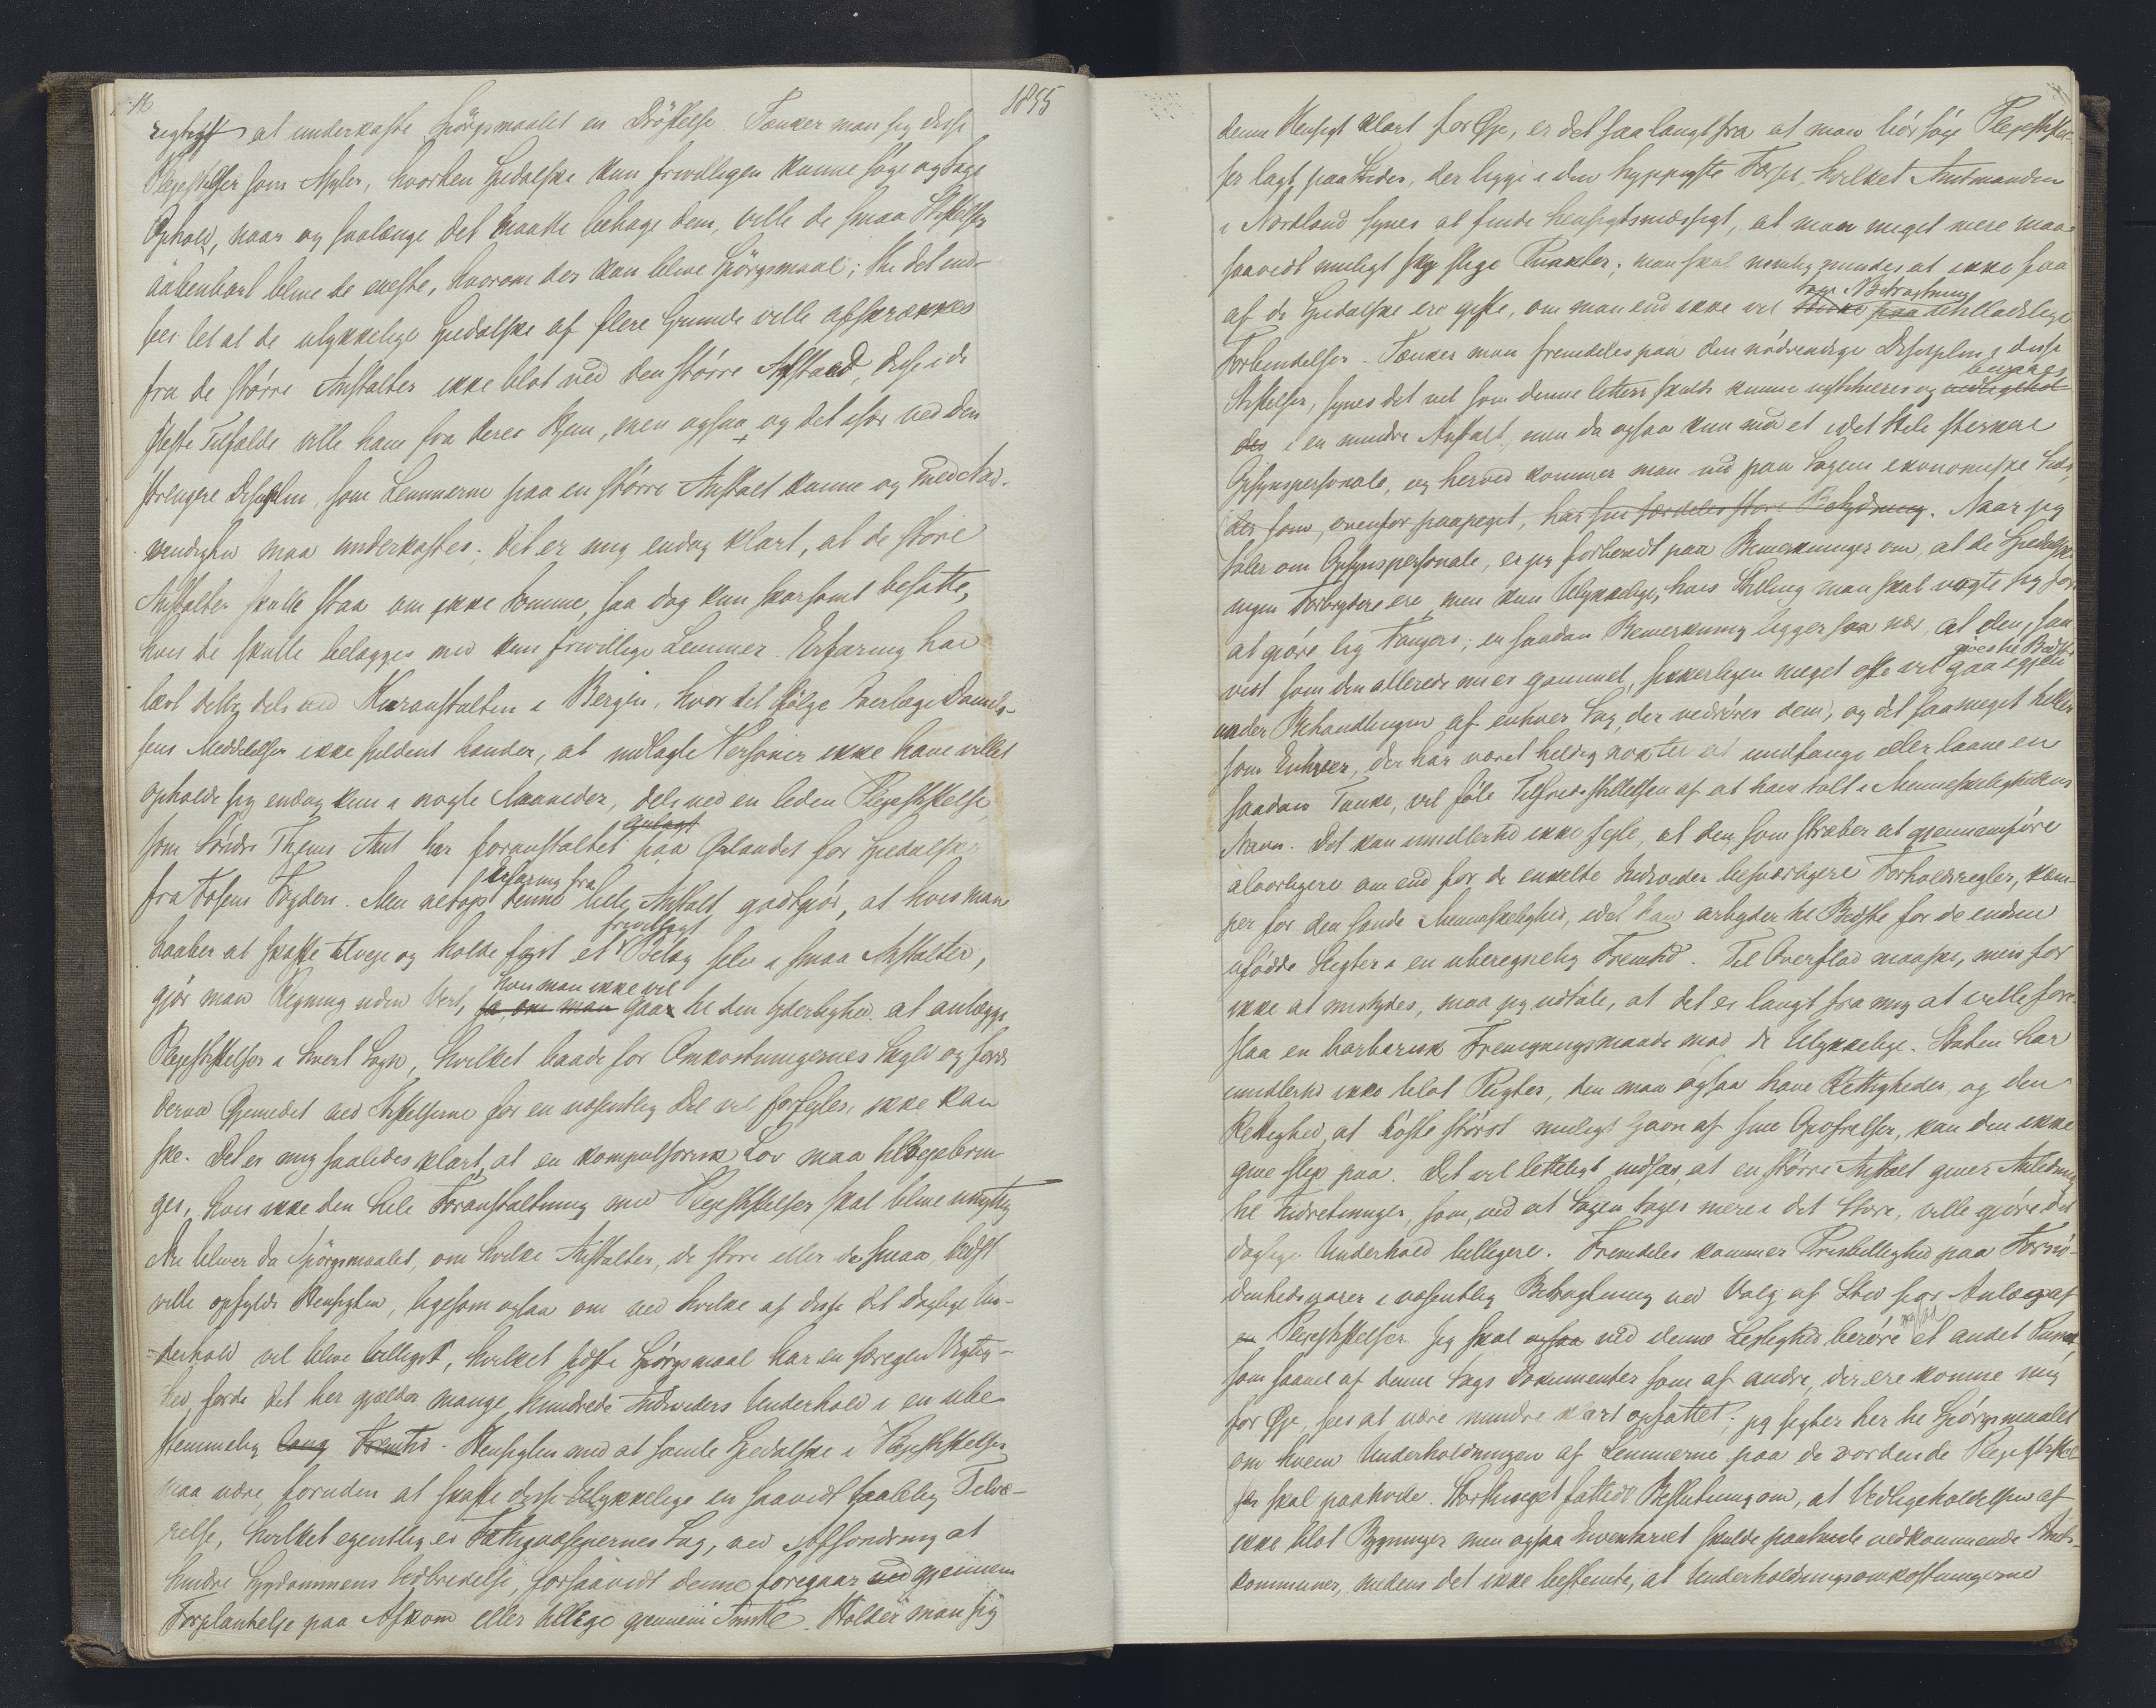 16
1855
rigtigst at underkaste Spörgsmaalet en Dröftelse. Tænker man sig disse
Plejestiftelser som Asyler, hvorhen Spedalske kun frivilligen kunne söge og tage
Ophold, naar og saalænge det maatte behage dem, ville de smaa Stiftelser
aabenbart blive de eneste, hvorom der kan blive Spörgsmaal; thi det ind-
sees let at de ulykkelige Spedalske af flere Grunde ville afskrækkes
fra de större Anstalter ikke blot ved den större Afstand, disse i de
fleste Tilfælde ville have fra deres Hjem, men ogsaa og det især ved den
strengere Disciplin, som Lemmerne paa en större Anstalt kunne og med Nöd-
vendighed maa underkastes. Det er mig endog klart, at de störe
Anstalter skulle staa om ikke tomme, saa dog kun sparsomt besatte,
hvis de skulle belægges med kun frivillige Lemmer. Erfaring har
lært dette, dels ved Kuranstalten i Bergen, hvor det ifölge Overlæge Daniels-
sens Meddelelser ikke sjeldent hænder, at indlagte Personer ikke have villet
opholde sig endog kun i nogle Maaneder, dels ved en liden Plejestiftelse,
som Söndre Thjems Amt har foranstaltet anlagt paa Ørlandet for Spedalske
fra Fosens Fogderi. Men netop Erfaring fra denne lille Anstalt godtgjör, at hvis man
haaber at skaffe tilveje og holde fast et frivilligt Belæg selv i smaa Anstalter,
gjör man Regning uden Vert, ja, om man hvis man ikke vil gaa til den Yderlighed at anlægge
Plejestiftelser i hvert Sogn, hvilket baade for Omkostningernes Skyld og fordi
derved Øjemedet med Stiftelserne for en væsentlig Del vil forfejles, ikke kan
ske. Det er mig saaledes klart, at en kompulsorisk Lov maa tilvejebrin-
ges, hvis ikke den hele Foranstaltning med Plejestiftelser skal blive unyttig.
Nu bliver da Spörgsmaalet, om hvilke Anstalter, de störe eller de smaa, bedst
ville opfylde Hensigten, ligesom ogsaa om ved hvilke af disse det daglige Un-
derhold vil blive billigst, hvilket sidste Spörgsmaal har en særegen Vigtig-
hed, fordi det her gjælder mange hundrede Individers Underhold i en ube-
stemmelig lang Fremtid. Hensigten med at samle Spedalske i Plejestiftelser
maa være, foruden at skaffe disse Ulykkelige en saavidt taalelig Tilvæ-
relse, hvilket egentlig er Fattigvæsenernes Sag, ved Afsondring at
hindre Sygdommens Udbredelse, forsaavidt denne foregaar ved gjennem
Forplantelse paa Afkom eller tillige gjennem Smitte. Holder man sig
denne Hensigt klart for Øje, er det saa langt fra at man bör söge Plejestiftel-
ser lagt paa Steder, der ligge i den hyppigste Færsel, hvilket Amtmanden
i Nordland synes at finde hensigtsmæssigt, at man meget mere maa
saavidt muligt sky slige Punkter; man skal nemlig mindes at ikke faa
af de Spedalske ere gifte, om man end ikke vil tænke paa tage i Betragtning utilladelige
Forbindelser. Tænker man fremdeles paa den nödvendige Disciplin i disse
Stiftelser, synes det vel som denne lettere skulde kunne institueres og vedligehol- bevares
des i en mindre Anstalt, men da ogsaa kun med et i det Hele sterkere
Opsynspersonale, og herved kommer man ind paa Sagens ekonomiske Side,
der som, ovenfor paapeget, har sin særdeles store Betydning. Naar jeg
taler om Opsynspersonale, er jeg forberedt paa Bemerkninger om, at de Spedalske
ingen Forbrydere ere, men kun Ulykkelige, hvis Stilling man skal vogte sig for
at gjöre lig Fangers; en saadan Bemerkning ligger saa nær, at den, saa
vist som den allerede nu er gammel, sikkerligen meget ofte vil gaa igjen gives til Bedste
under Behandlingen af enhver Sag, der vedrörer dem, og det saameget heller
som Enhver, der har været heldig nok til at undfange eller laane en
saadan Tanke, vil föle Tilfredsstillelsen af at have talt i Menneskelighedens
Navn. Det kan imidlertid ikke fejle, at den, som stræber at gjennemföre
alvorligere om end for de enkelte Individer besværligere Forholdsregler, kæm-
per for den sande Menneskelighed, idet han arbejder til Bedste for de endnu
ufödte Slegter i en uberegnelig Fremtid. Til Overflod maaske, men for
ikke at mistydes, maa jeg udtale, at det er langt fra mig at ville fore-
slaa en barbarisk Fremgangsmaade mod de Ulykkelige. Staten har
imidlertid ikke blot Pligter, den maa ogsaa have Rettigheder, og den
Rettighed, at höste störst muligt Gavn af sine Opofrelser, kan den ikke
give slip paa. Det vil letteligt indsees, at en större Anstalt giver Anledning
til Indretninger, som, ved at Sagen tages mere i det Store, ville gjöre det
daglige Underhold billigere. Fremdeles kommer Prisbillighed paa Fornö-
denhedsvarer i væsentlig Betragtning ved Valg af Sted for Anlæg af
en Plejestiftelser. Jeg skal ogsaa ved denne Lejlighed berøre ogsaa et andet Punkt,
som saavel af denne Sags Dokumenter som af andre, der ere komne mig
for Øje, sees at være mindre klart opfattet; jeg sigter her til Spörgsmaalet
om hvem Underholdningen af Lemmerne paa de vordende Plejestiftel-
ser skal paahvile. Storthinget fattede Beslutning om, at Vedligeholdelsen af
ikke blot Bygninger men ogsaa Inventariet skulde paahvile vedkommende Amts-
kommuner, medens det ikke bestemte, at Underholdningsomkostningerne